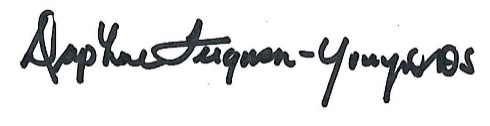 Daphne Ferguson-Young DDS